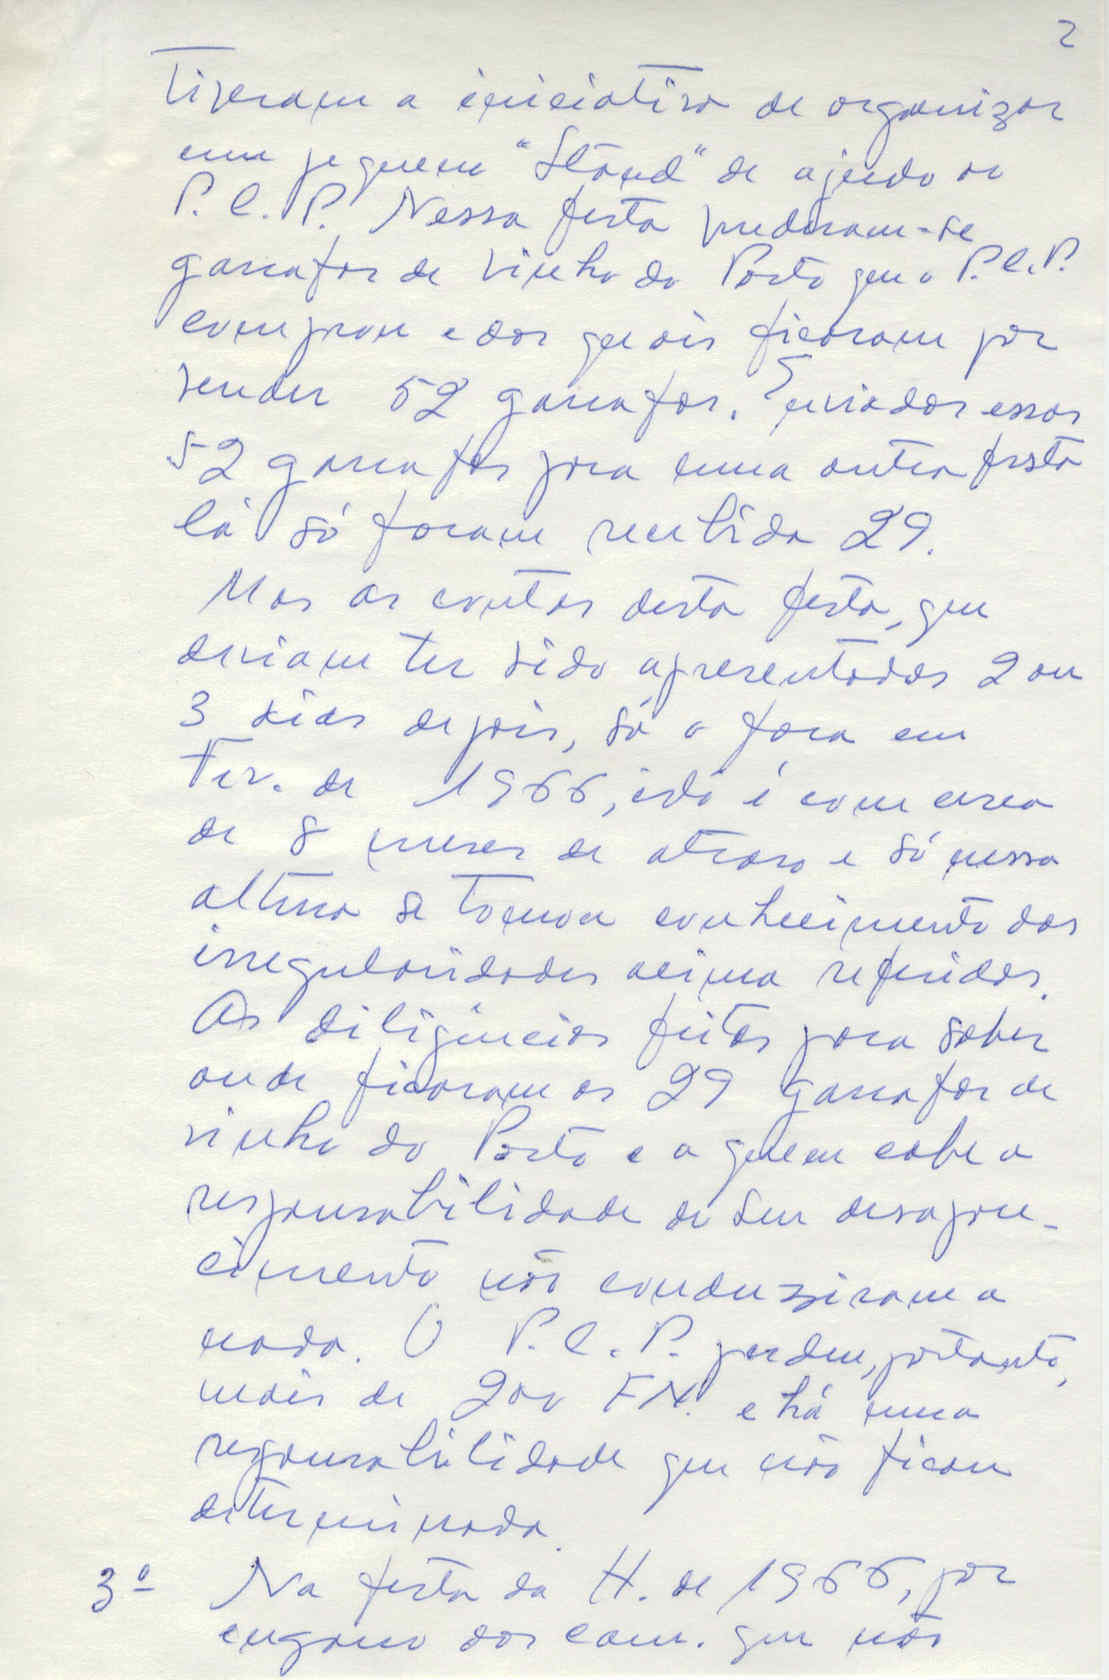 2
Tiveram a iniciativa de organizar
um pequeno "Stand" de ajuda ao
P.C.P. Nessa festa venderam-se
garrafas de vinho do Porto que o P.C.P.
comprou e das quais ficaram por
vender 52 garrafas. Enviadas essas
52 garrafas para uma outra festa
lá só foram recebida 29.
Mas as contas desta festa, que
deviam ter sido apresentadas 2 ou
3 dias depois, só o fora em
Fev. de 1966, isto é com cerca
de 8 meses de atraso e só nessa
altura se tomou conhecimento das
irregularidades acima referidas.
As diligências feitas para saber
onde ficaram as 29 garrafas de
vinho do Porto e a quem cabe a
responsabilidade do seu desapare-
cimento não conduziram a
nada. O P.C.P. perdeu, portanto,
mais de 200 FN. e há uma
responsabilidade que não ficou
determinada.
3º Na festa da H. de 1966, por
engano dos cam. que nos